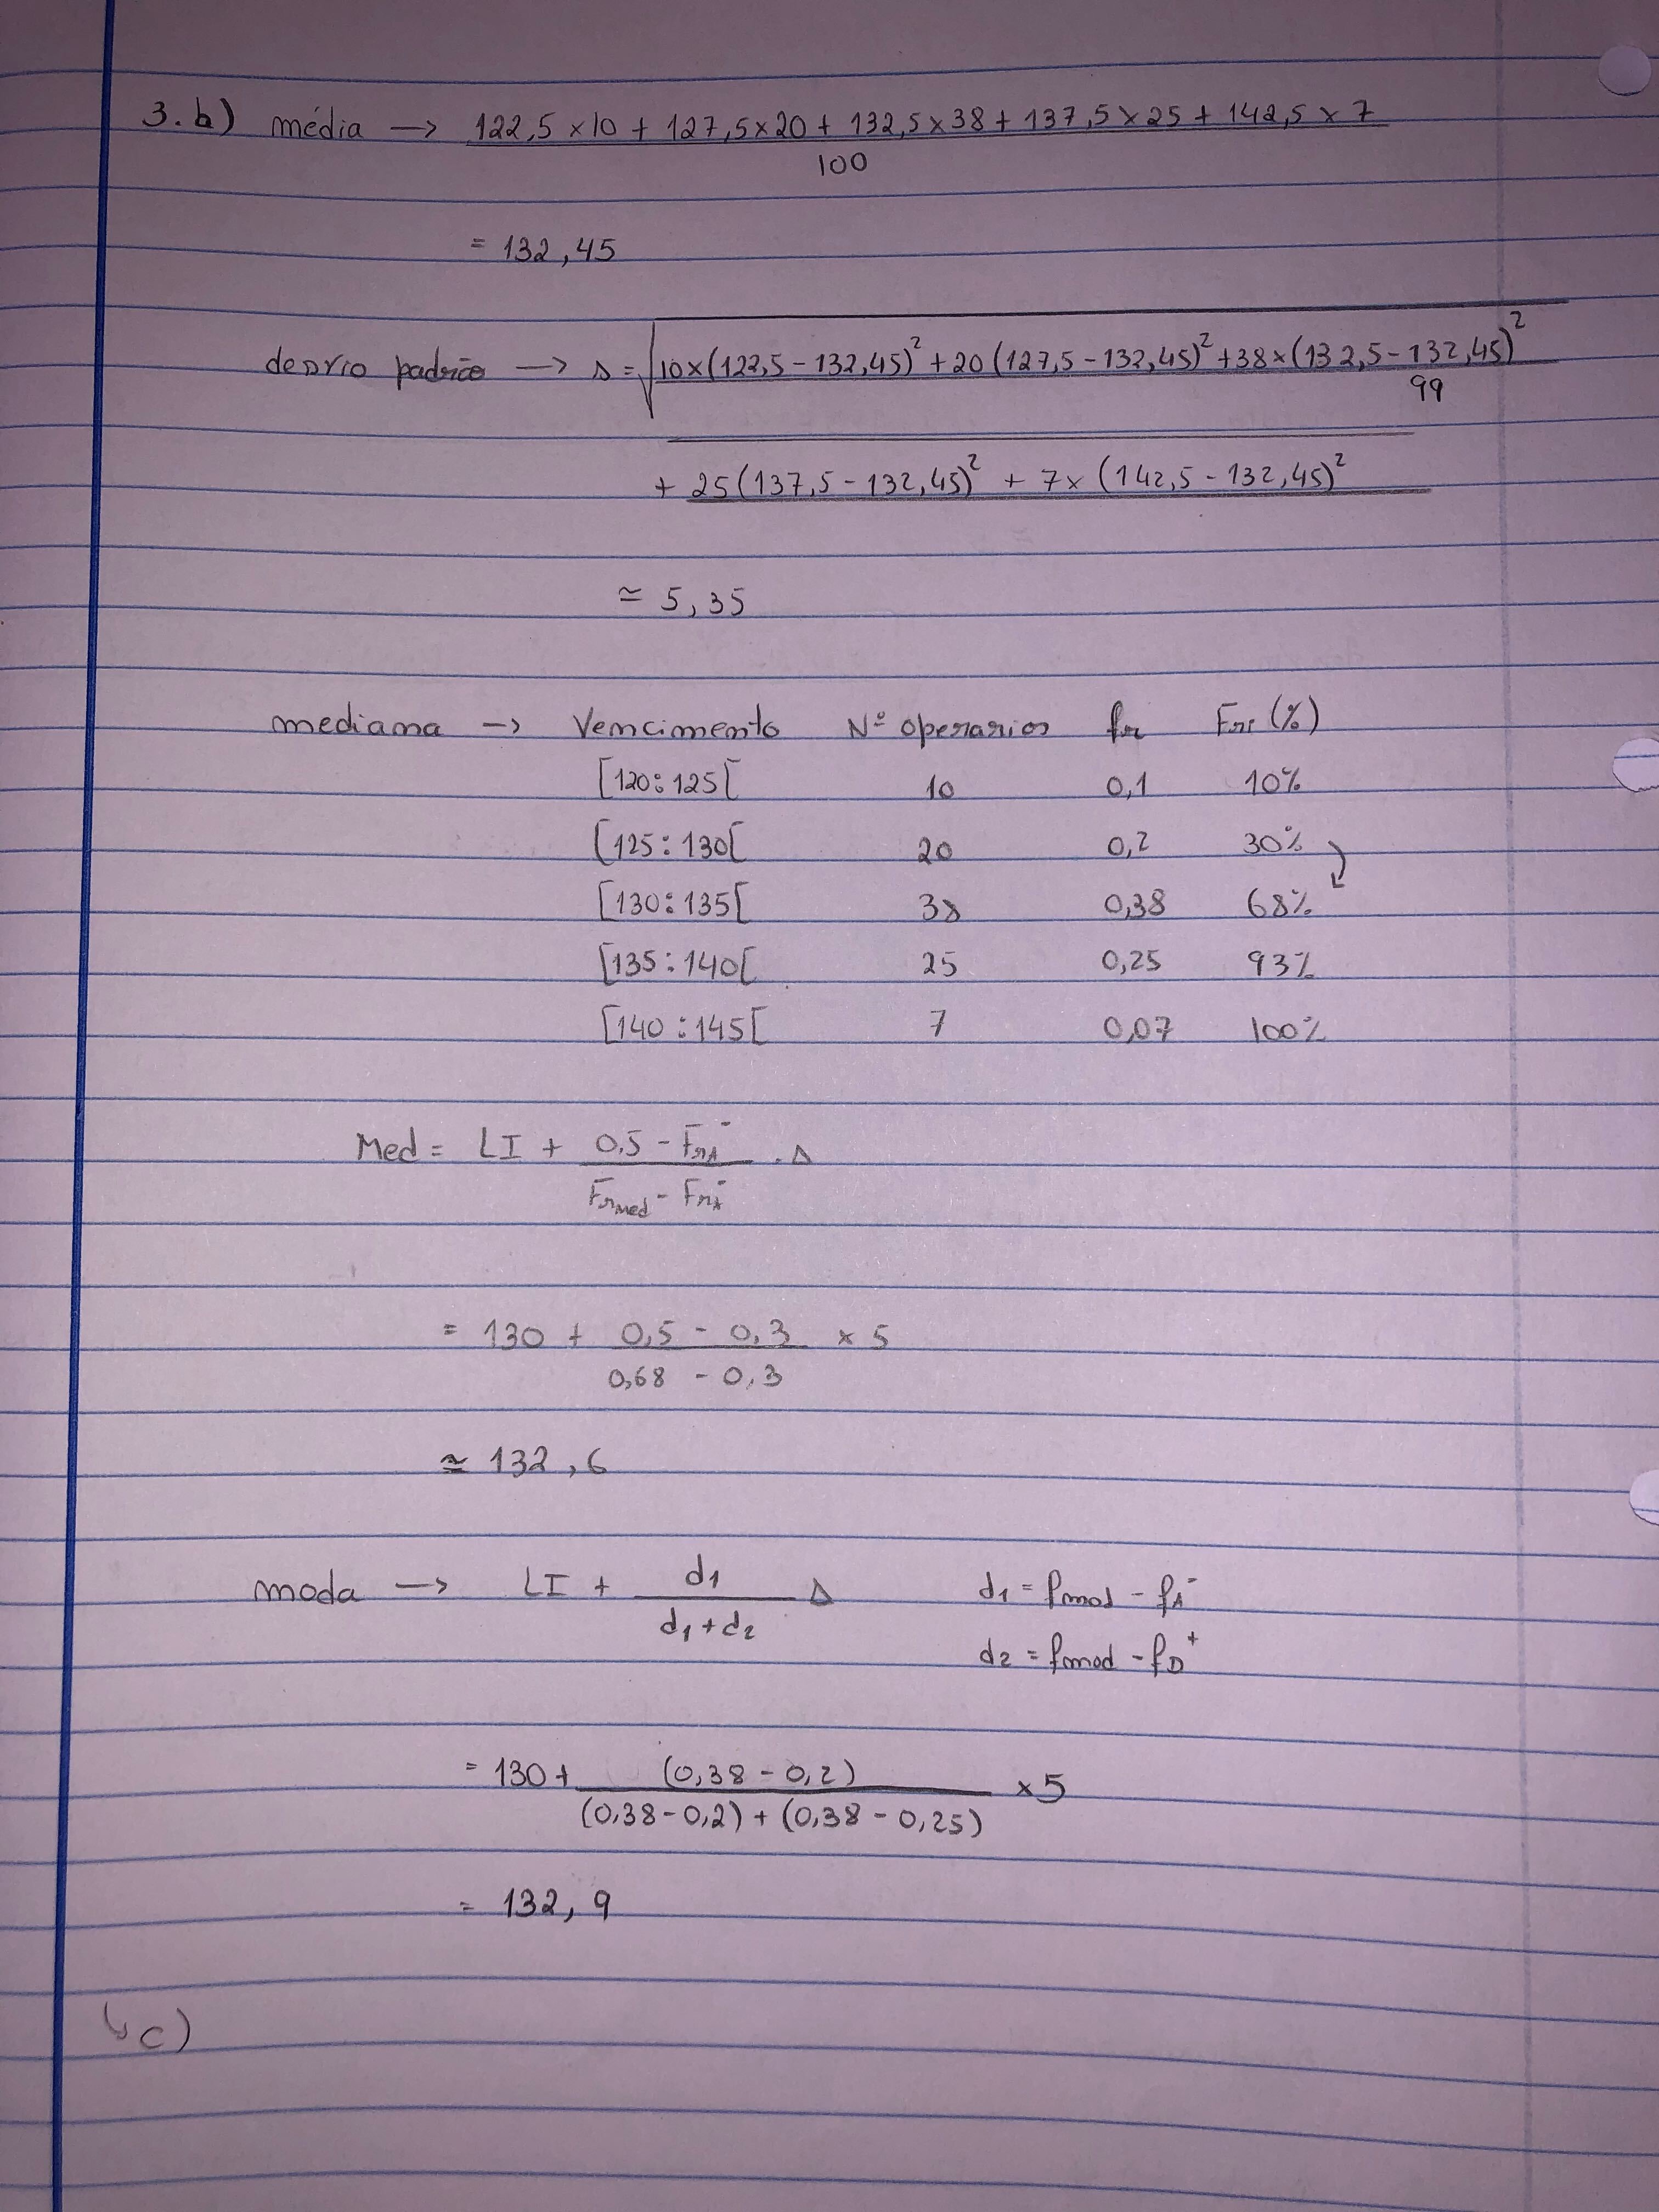 3. b) média → 122,5 × 10 + 127,5 × 20 + 132,5 × 38 + 137,5 × 25 + 142,5 × 7
100
= 132,45
desvio padrão → s = √ 10×(122,5 - 132,45)² + 20 (127,5 - 132,45)² + 38×(132,5 - 132,45)²
99
+ 25(137,5 - 132,45)² + 7× (142,5 - 132,45)²
≃ 5,35
mediana → Vencimento Nº operarios fr Fri (%)
[120: 125[ 10 0,1 10%
[125: 130[ 20 0,2 30%
[130: 135[ 38 0,38 68%
[135: 140[ 25 0,25 93%
[140: 145[ 7 0,07 100%
Med = LI + 0,5 - FrA⁻ . Δ
FrMed - FrA⁻
= 130 + 0,5 - 0,3 × 5
0,68 - 0,3
≃ 132,6
moda → LI + d1 Δ d1 = fmod - fA⁻
d1 + d2 d2 = fmod - fD⁺
= 130 + (0,38 - 0,2) ×5
(0,38 - 0,2) + (0,38 - 0,25)
= 132,9
↳ c)